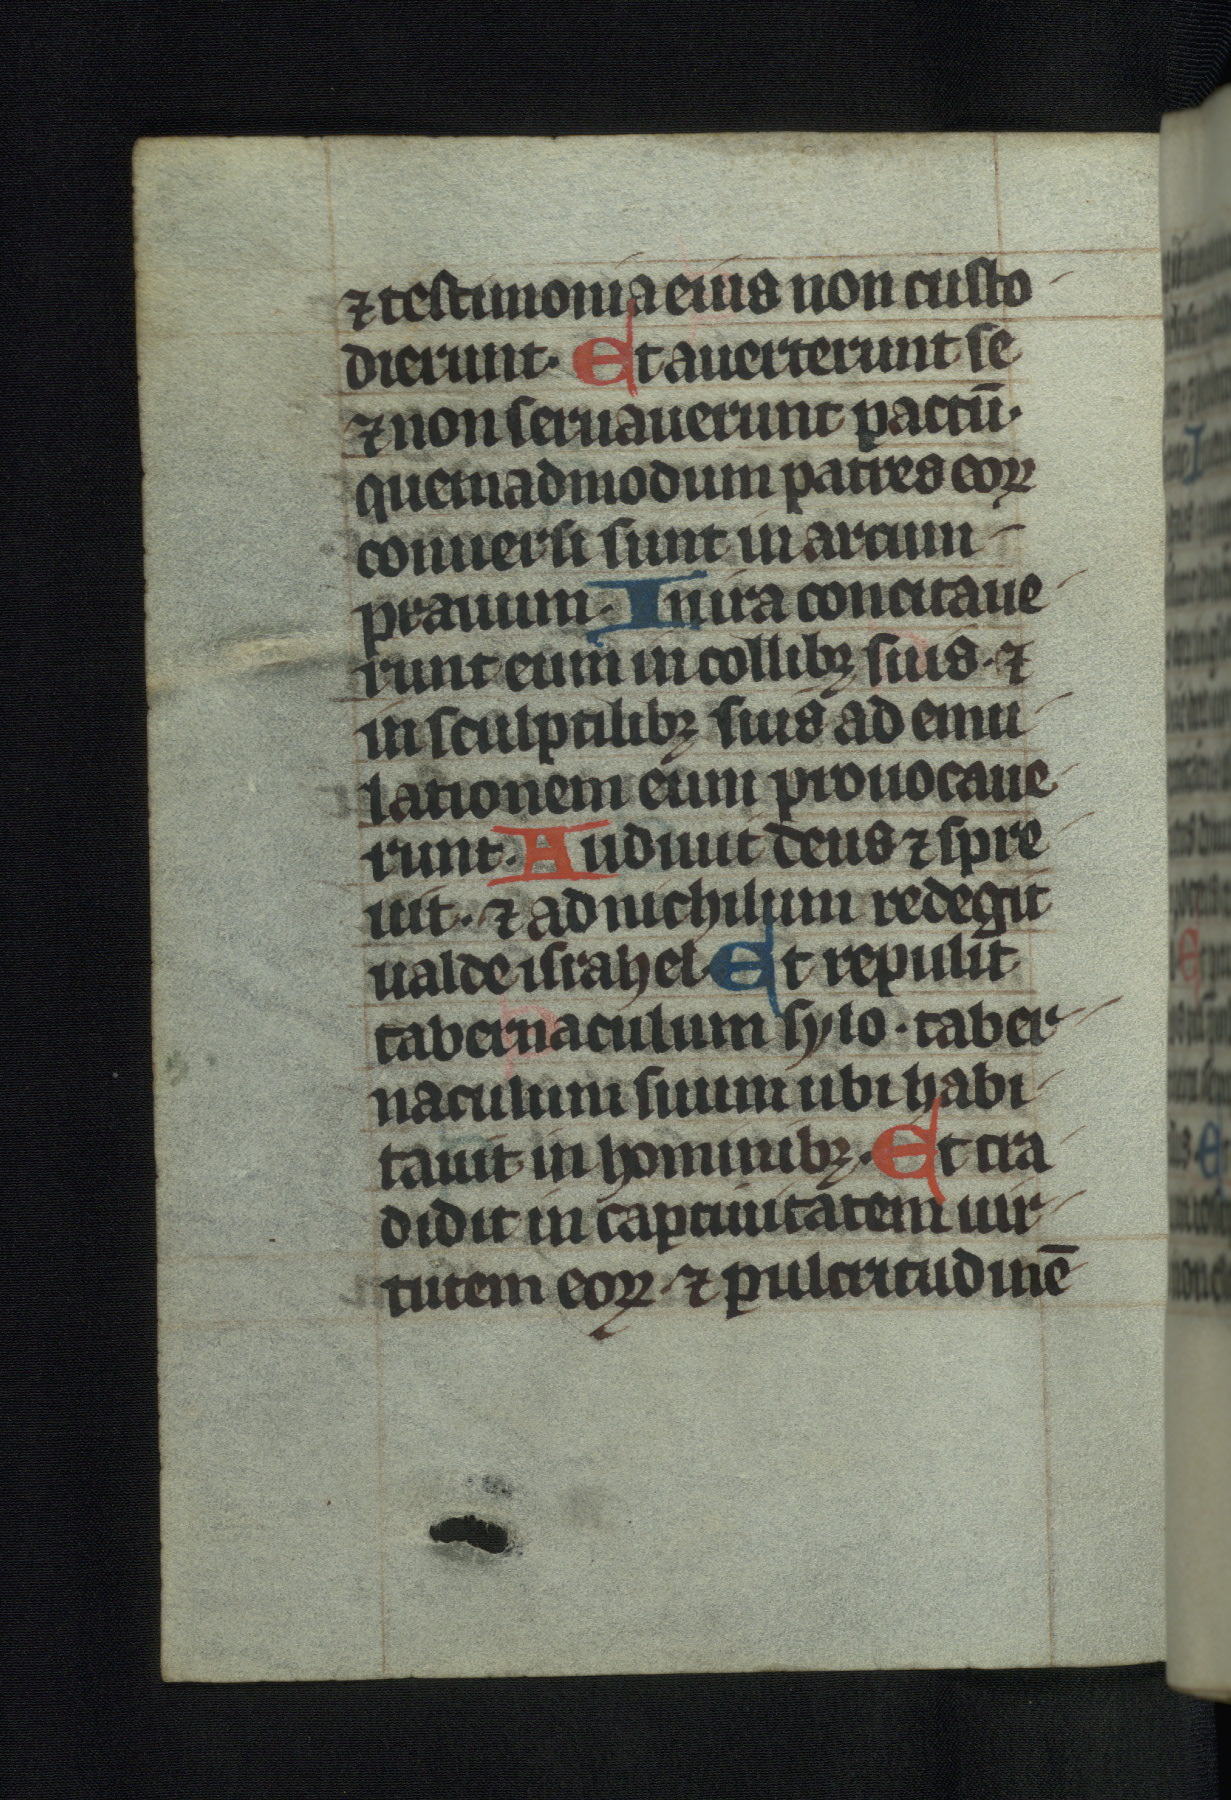 ⁊ testimonia eius non custo
dierunt. Et auerterunt se
⁊ non seruauerunt pactū.
quemadmodum patres eoꝝ
conuersi sunt in arcum
prauum. In ira concitaue
runt eum in collibꝫ suis. ⁊
in sculptilibꝫ suis ad emu
lationem eum prouocaue
runt. Audiuit deus ⁊ spre
uit. ⁊ ad nichilum redegit
ualde israhel. Et repulit
tabernaculum sylo. taber
naculum suum ubi habi
tauit in hominibꝫ. Et tra
didit in captiuitatem uir
tutem eoꝝ. ⁊ pulcritudinē